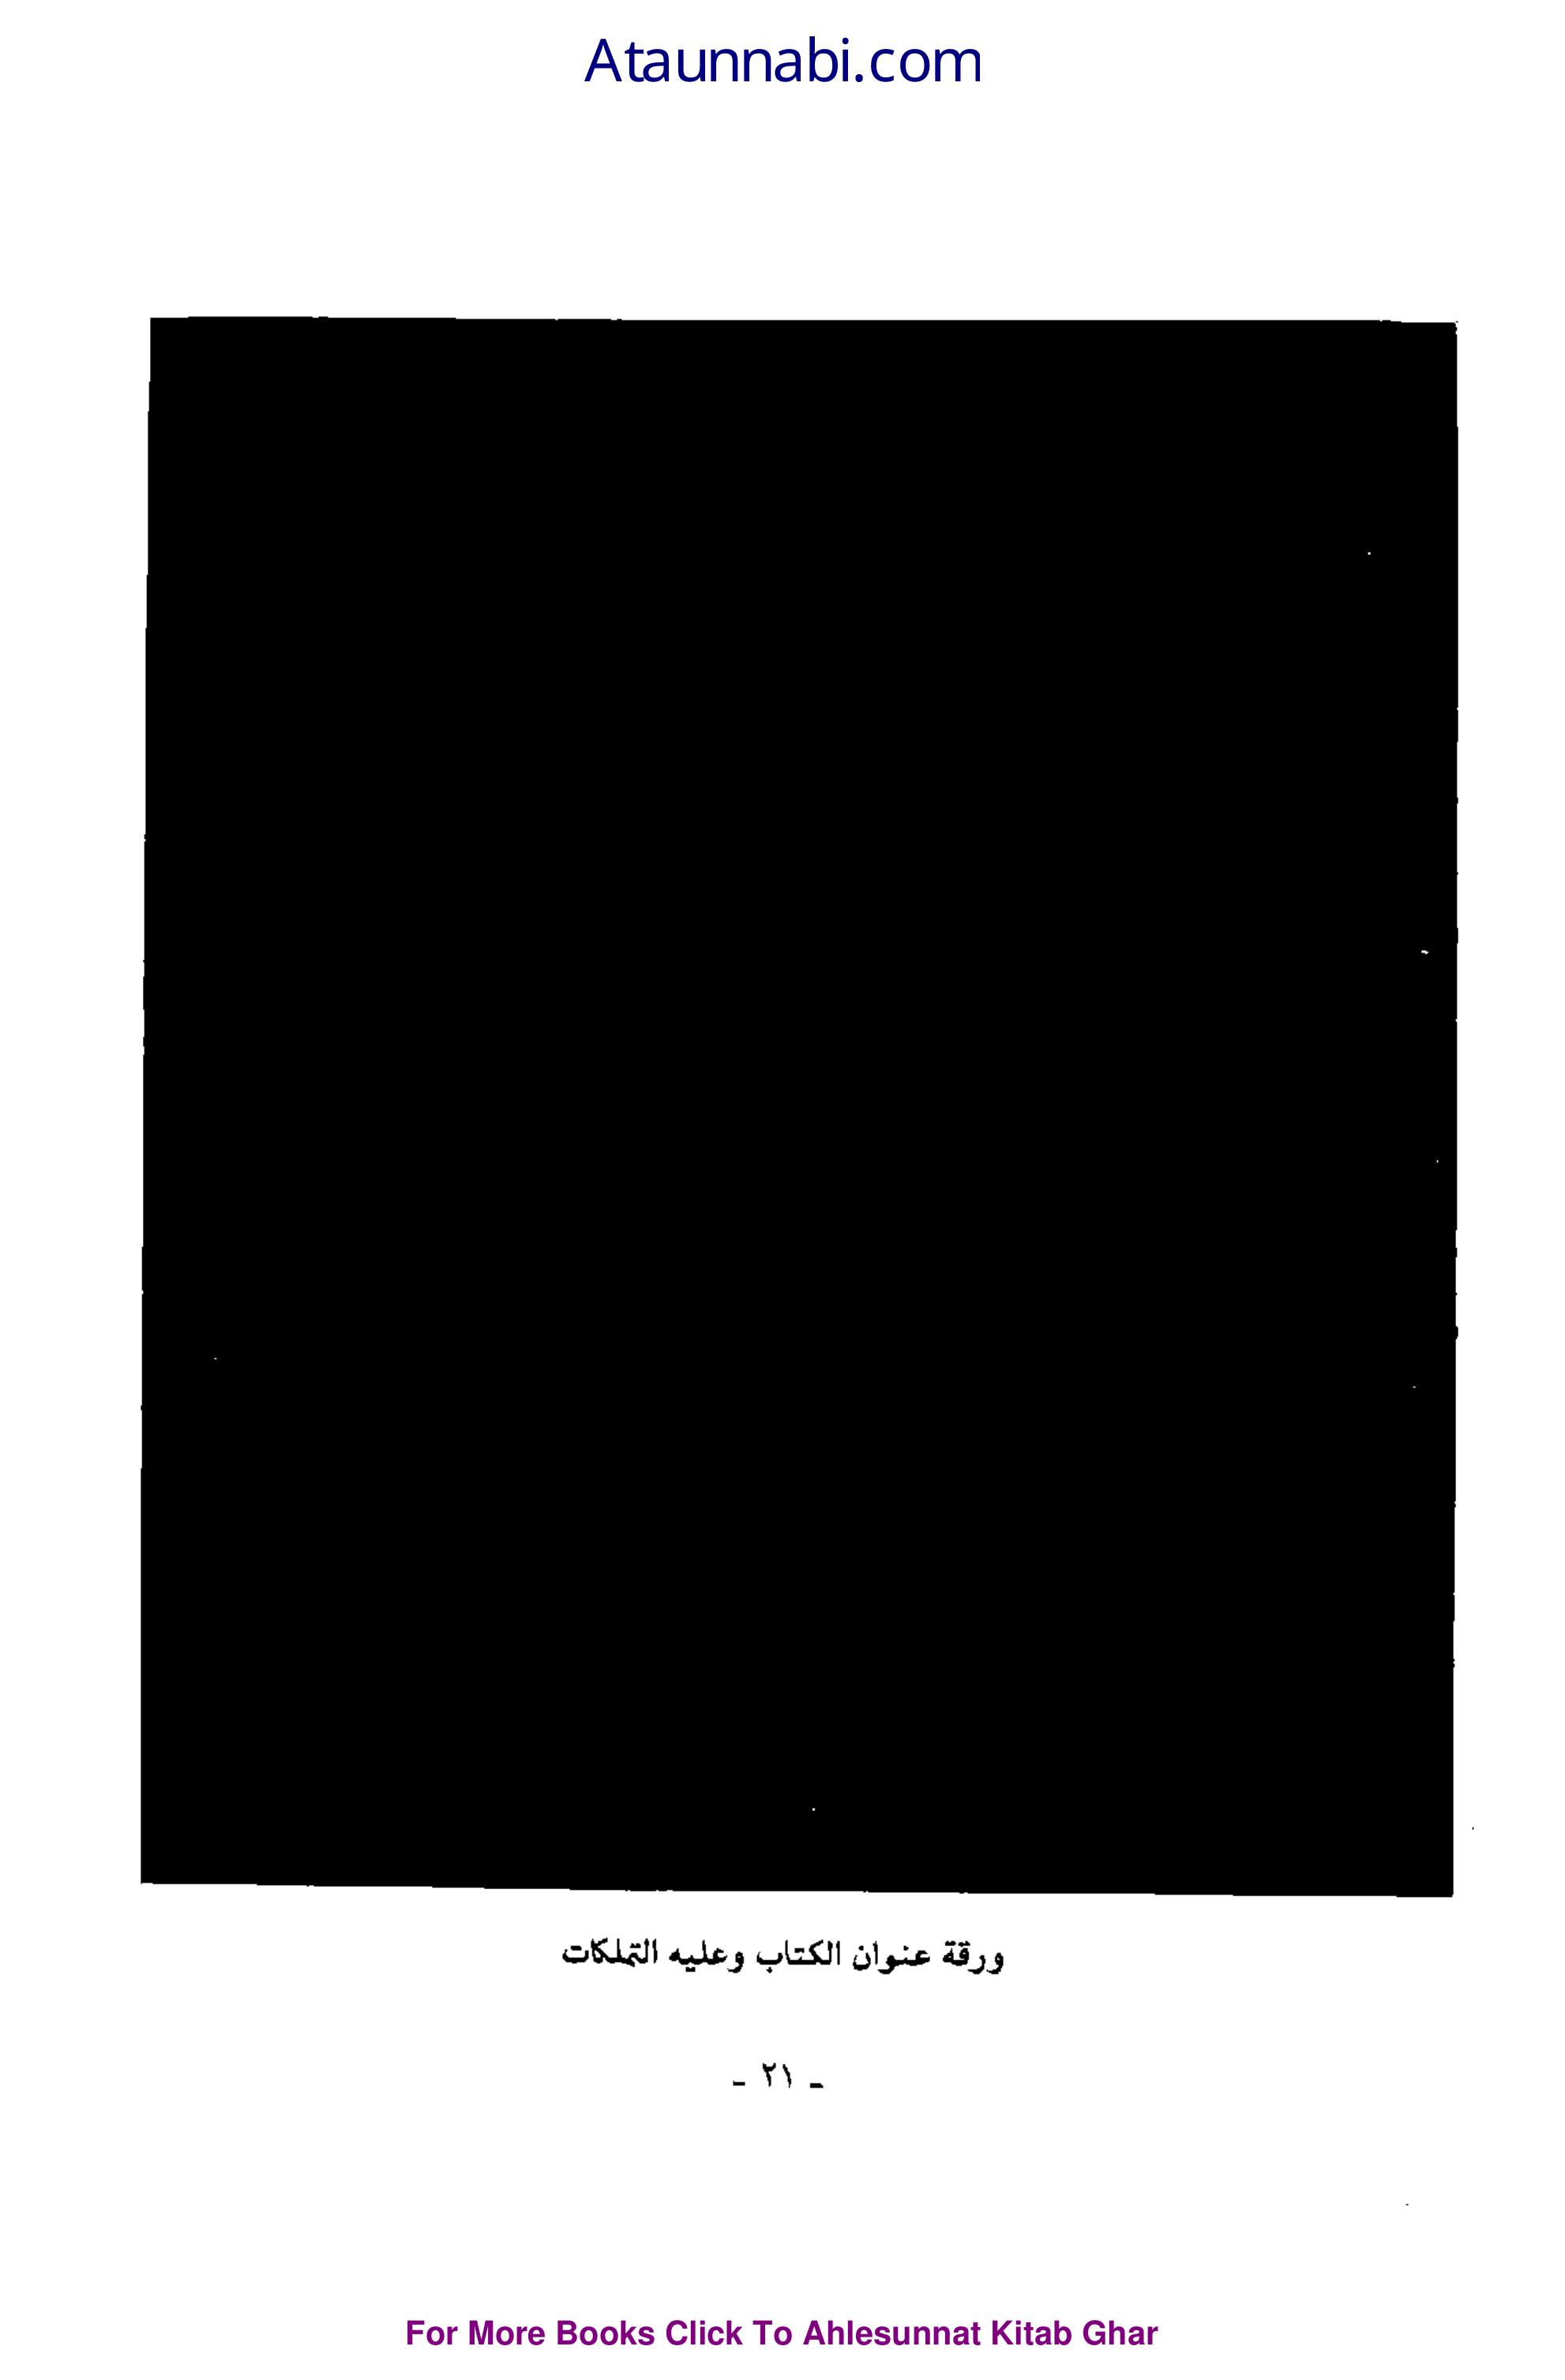 Ataunnabi.com
ورقة عنوان الكتاب وعليه التملكات
ـ ٢١ ـ
For More Books Click To Ahlesunnat Kitab Ghar